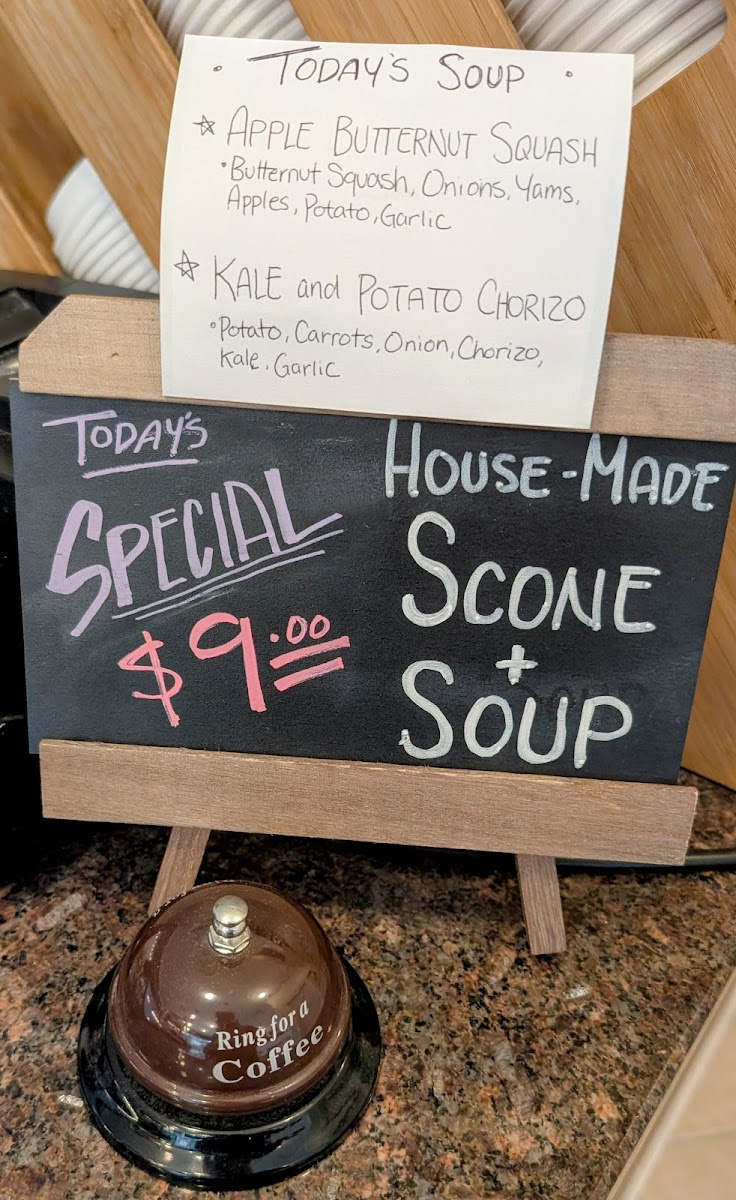 • TODAY'S SOUP •
☆ APPLE BUTTERNUT SQUASH
• Butternut Squash, Onions, Yams,
Apples, Potato, Garlic
☆ KALE and POTATO CHORIZO
• Potato, Carrots, Onion, Chorizo,
Kale, Garlic
TODAY'S
SPECIAL
$9.00
HOUSE-MADE
SCONE
+
SOUP
Ring for a
Coffee.